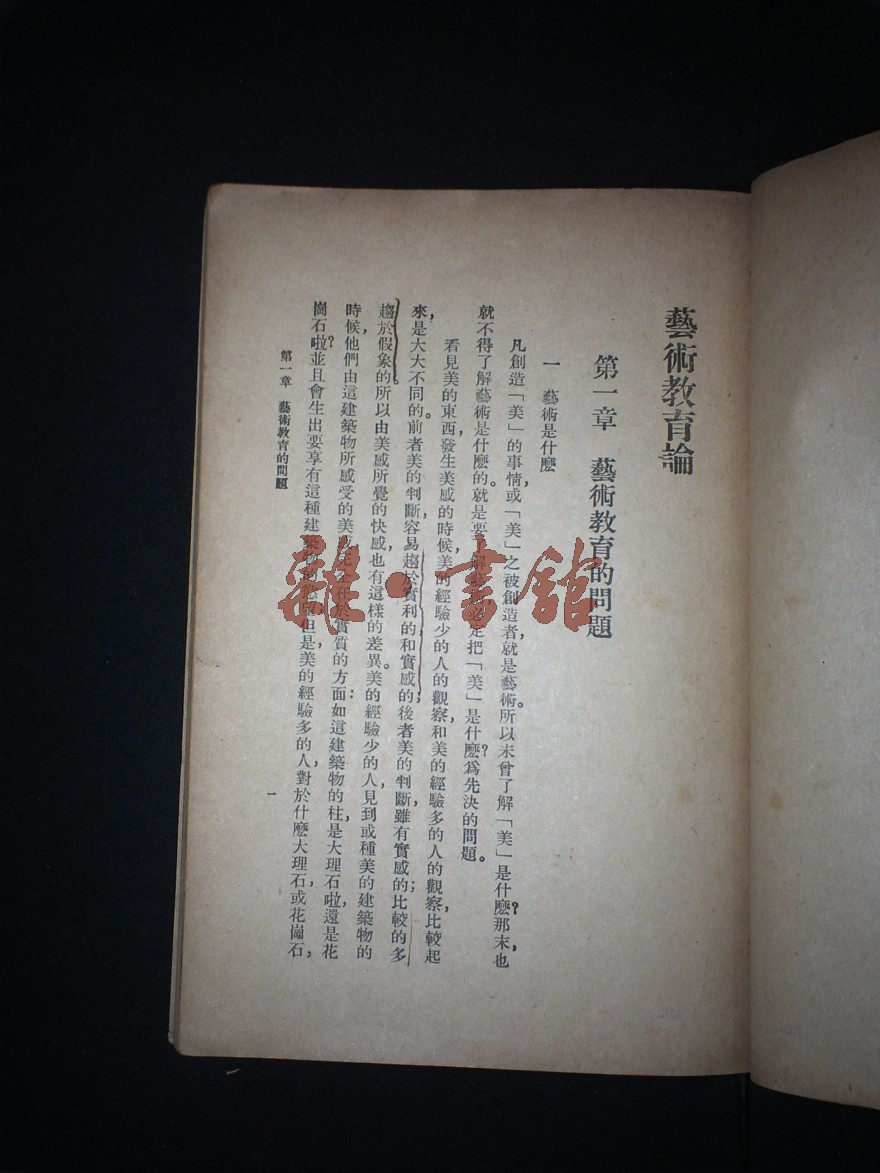 藝術教育論
第一章 藝術教育的問題
一 藝術是什麽
凡創造「美」的事情，或「美」之被創造者，就是藝術。所以未曾了解「美」是什麽？那末，也
就不得了解藝術是什麽的。就是要了解藝術，必定把「美」是什麽？爲先決的問題。
看見美的東西，發生美感的時候，美的經驗少的人的觀察，和美的經驗多的人的觀察，比較起
來，是大大不同的。前者美的判斷，容易趨於實利的和實感的；後者美的判斷，雖有實感的；比較的多
趨於假象的。所以由美感所覺的快感，也有這樣的差異。美的經驗少的人，見到或種美的建築物的
時候，他們由這建築物所感受的美感，完全在於實質的方面：如這建築物的柱，是大理石啦，還是花
崗石啦？並且會生出要享有這種建築物的慾望；但是，美的經驗多的人，對於什麽大理石，或花崗石，
第一章 藝術教育的問題
一
雜·書舘